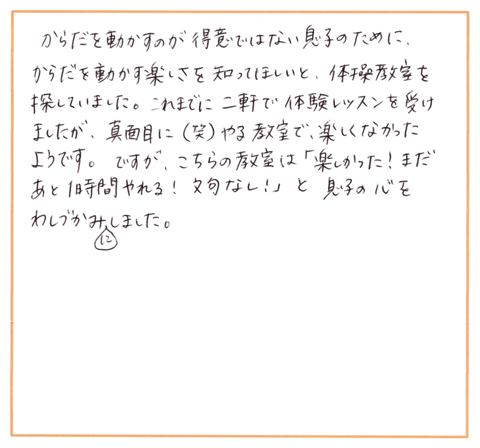 からだを動かすのが得意ではない息子のために、
からだを動かす楽しさを知ってほしいと、体操教室を
探していました。これまでに二軒で体験レッスンを受け
ましたが、真面目に(笑)やる教室で、楽しくなかった
ようです。ですが、こちらの教室は「楽しかった！まだ
あと1時間やれる！文句なし！」と息子の心を
わしづかみにしました。